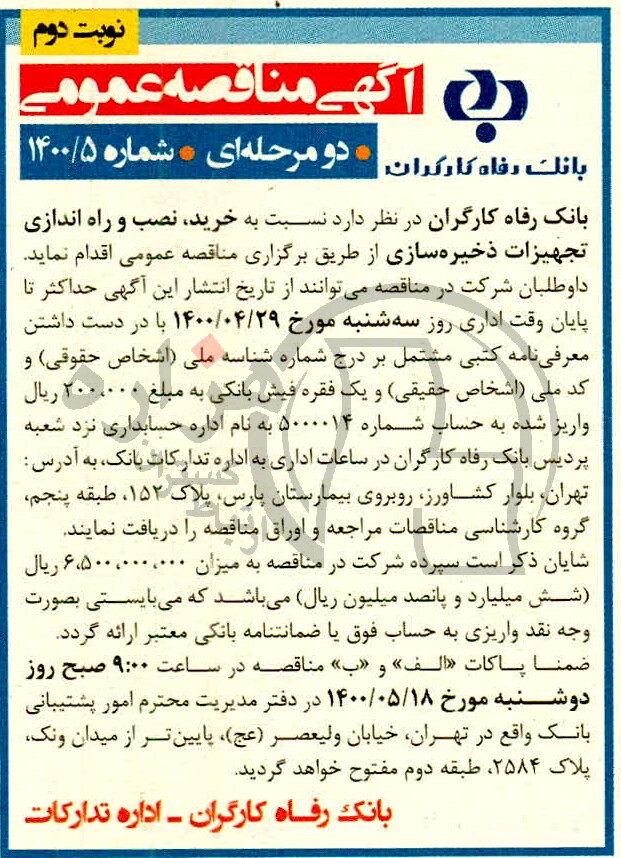 نوبت دوم
آگهی مناقصه عمومی
دو مرحله‌ای • شماره ۱۴۰۰/۵
بانک رفاه کارگران
بانک رفاه کارگران در نظر دارد نسبت به خرید، نصب و راه اندازی
تجهیزات ذخیره‌سازی از طریق برگزاری مناقصه عمومی اقدام نماید.
داوطلبان شرکت در مناقصه می‌توانند از تاریخ انتشار این آگهی حداکثر تا
پایان وقت اداری روز سه‌شنبه مورخ ۱۴۰۰/۰۴/۲۹ با در دست داشتن
معرفی‌نامه کتبی مشتمل بر درج شماره شناسه ملی (اشخاص حقوقی) و
کد ملی (اشخاص حقیقی) و یک فقره فیش بانکی به مبلغ ۲۰۰،۰۰۰ ریال
واریز شده به حساب شماره ۵۰۰۰۰۱۴ به نام اداره حسابداری نزد شعبه
پردیس بانک رفاه کارگران در ساعات اداری به اداره تدارکات بانک، به آدرس:
تهران، بلوار کشاورز، روبروی بیمارستان پارس، پلاک ۱۵۲، طبقه پنجم،
گروه کارشناسی مناقصات مراجعه و اوراق مناقصه را دریافت نمایند.
شایان ذکر است سپرده شرکت در مناقصه به میزان ۶،۵۰۰،۰۰۰،۰۰۰ ریال
(شش میلیارد و پانصد میلیون ریال) می‌باشد که می‌بایستی بصورت
وجه نقد واریزی به حساب فوق یا ضمانتنامه بانکی معتبر ارائه گردد.
ضمنا پاکات «الف» و «ب» مناقصه در ساعت ۹:۰۰ صبح روز
دوشنبه مورخ ۱۴۰۰/۰۵/۱۸ در دفتر مدیریت محترم امور پشتیبانی
بانک واقع در تهران، خیابان ولیعصر (عج)، پایین‌تر از میدان ونک،
پلاک ۲۵۸۴، طبقه دوم مفتوح خواهد گردید.
بانک رفاه کارگران - اداره تدارکات